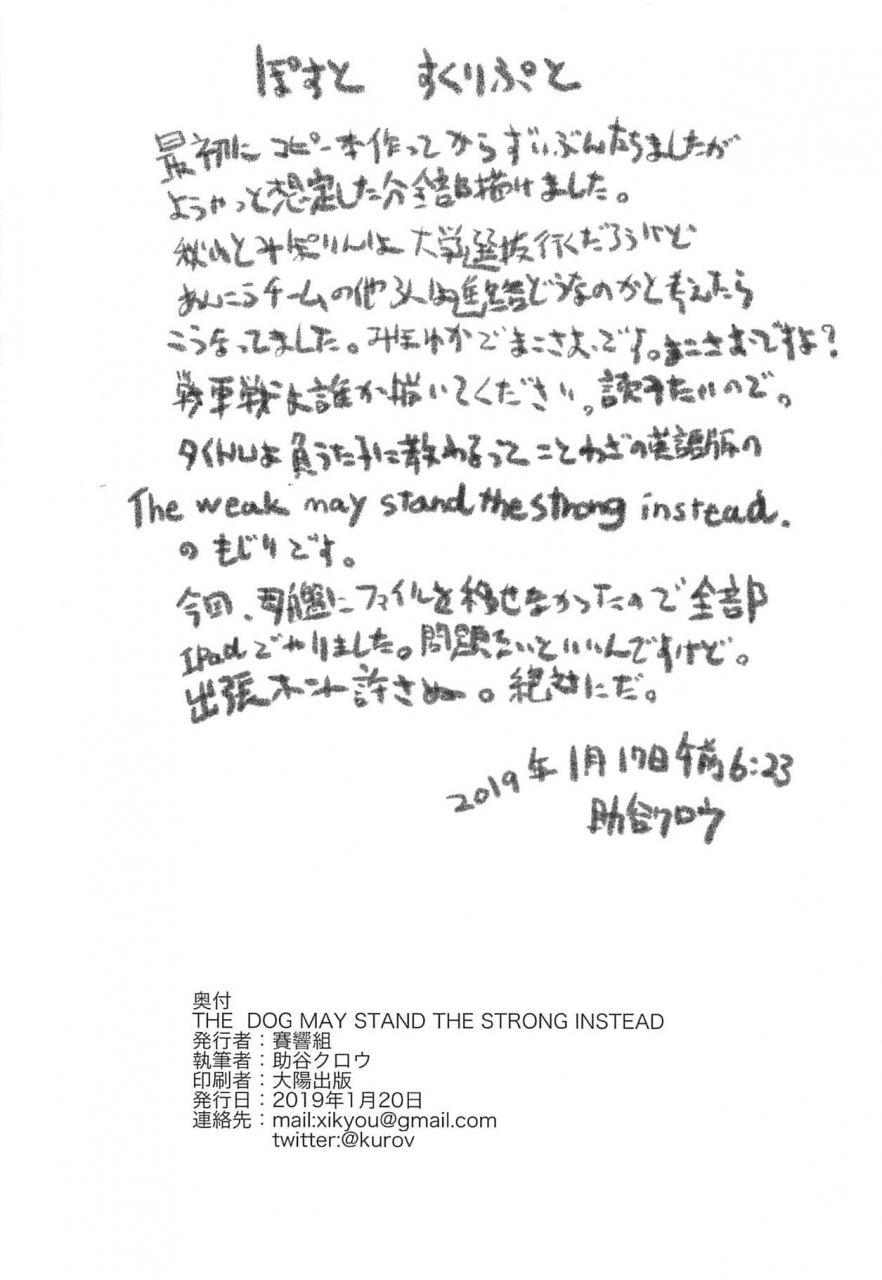 ぽすと　すくりぷと
最初に コピー本作ってからずいぶんたちましたが
ようやっと想定した分全部描けました。
秋山とみぽりんは 大学選抜行くだろうけど
あんこうチームの他3人は進路どうなのかと考えたら
こうなってました。みほゆかでまこさおです。まこさおですよ?
戦車戦は誰か描いてください。読みたいので。
タイトルは負うた子に教わるって ことわざの英語版の
The weak may stand the strong instead.
のもじりです。
今回、母艦にファイルを移せなかったので全部
IPadでやりました。問題ないといいんですけど。
出張ホント許さぬー。絶対にだ。
2019年1月17日午前6:23
助谷クロウ
奥付
THE DOG MAY STAND THE STRONG INSTEAD
発行者：賽響組
執筆者：助谷クロウ
印刷者：大陽出版
発行日：2019年1月20日
連絡先：mail:xikyou@gmail.com
twitter:@kurov